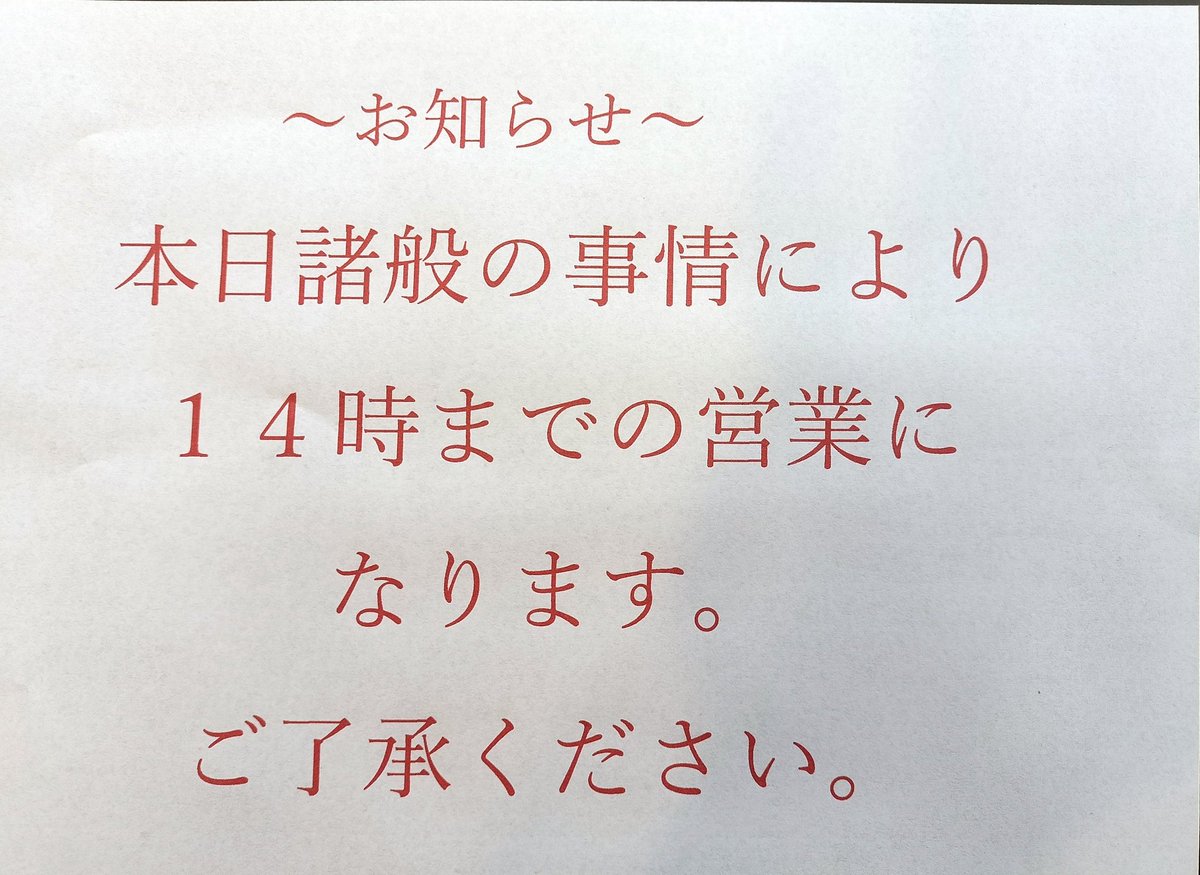 ～お知らせ～
本日諸般の事情により
１４時までの営業に
なります。
ご了承ください。